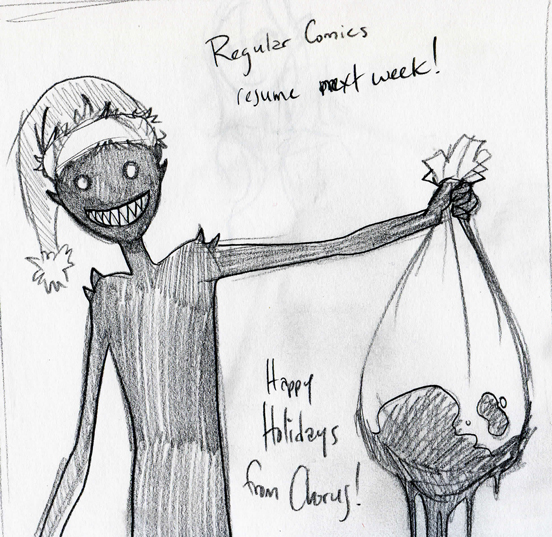 Regular Comics
resume next week!
Happy
Holidays
from Chorus!